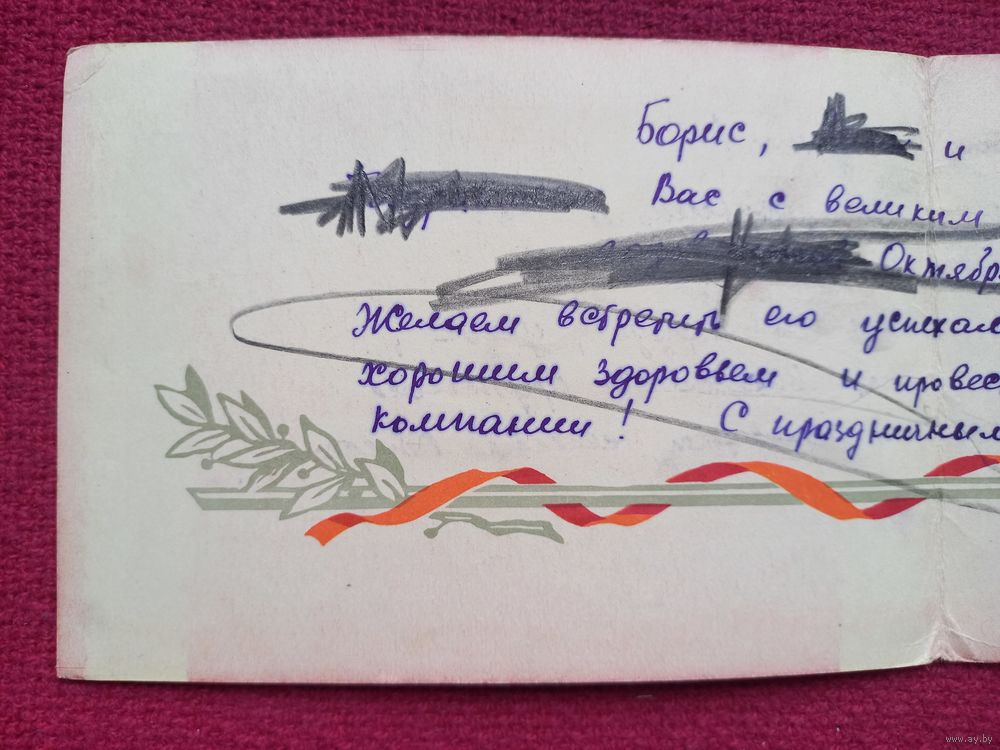 Борис, и
Вас с великим
Октябр
Желаем встретить его успехам
хорошим здоровьем и провес
компании! С праздничным
www.ay.by